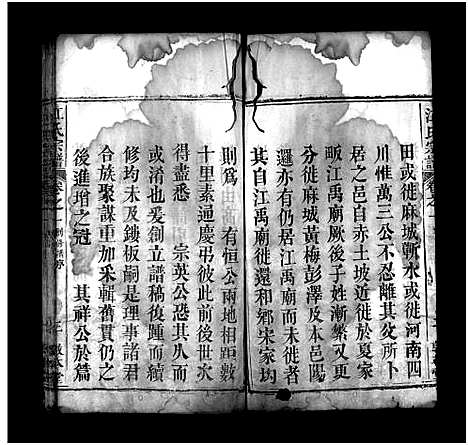 江氏宗譜
卷之一
田或徙麻城蘄水或徙河南四
川惟萬三公不忍離其父所卜
居之邑自赤土坡近徙於夏家
畈江禹廟厥後子姓漸繁又更
分徙麻城黃梅彭澤及本邑陽
邏亦有仍居江禹廟而未徙者
其自江禹廟徙還和鄉宋家垇
則為 有恒公兩地相距數
十里素遞慶弔彼此前後世次
得盡悉 宗英公恐其久而
或淆也爰創立譜稿後踵而續
修均未及鋟板嗣是理事諸君
合族聚謀重加采輯舊貫仍之
後進增之冠 其祥公於篇
江氏宗譜
卷之一